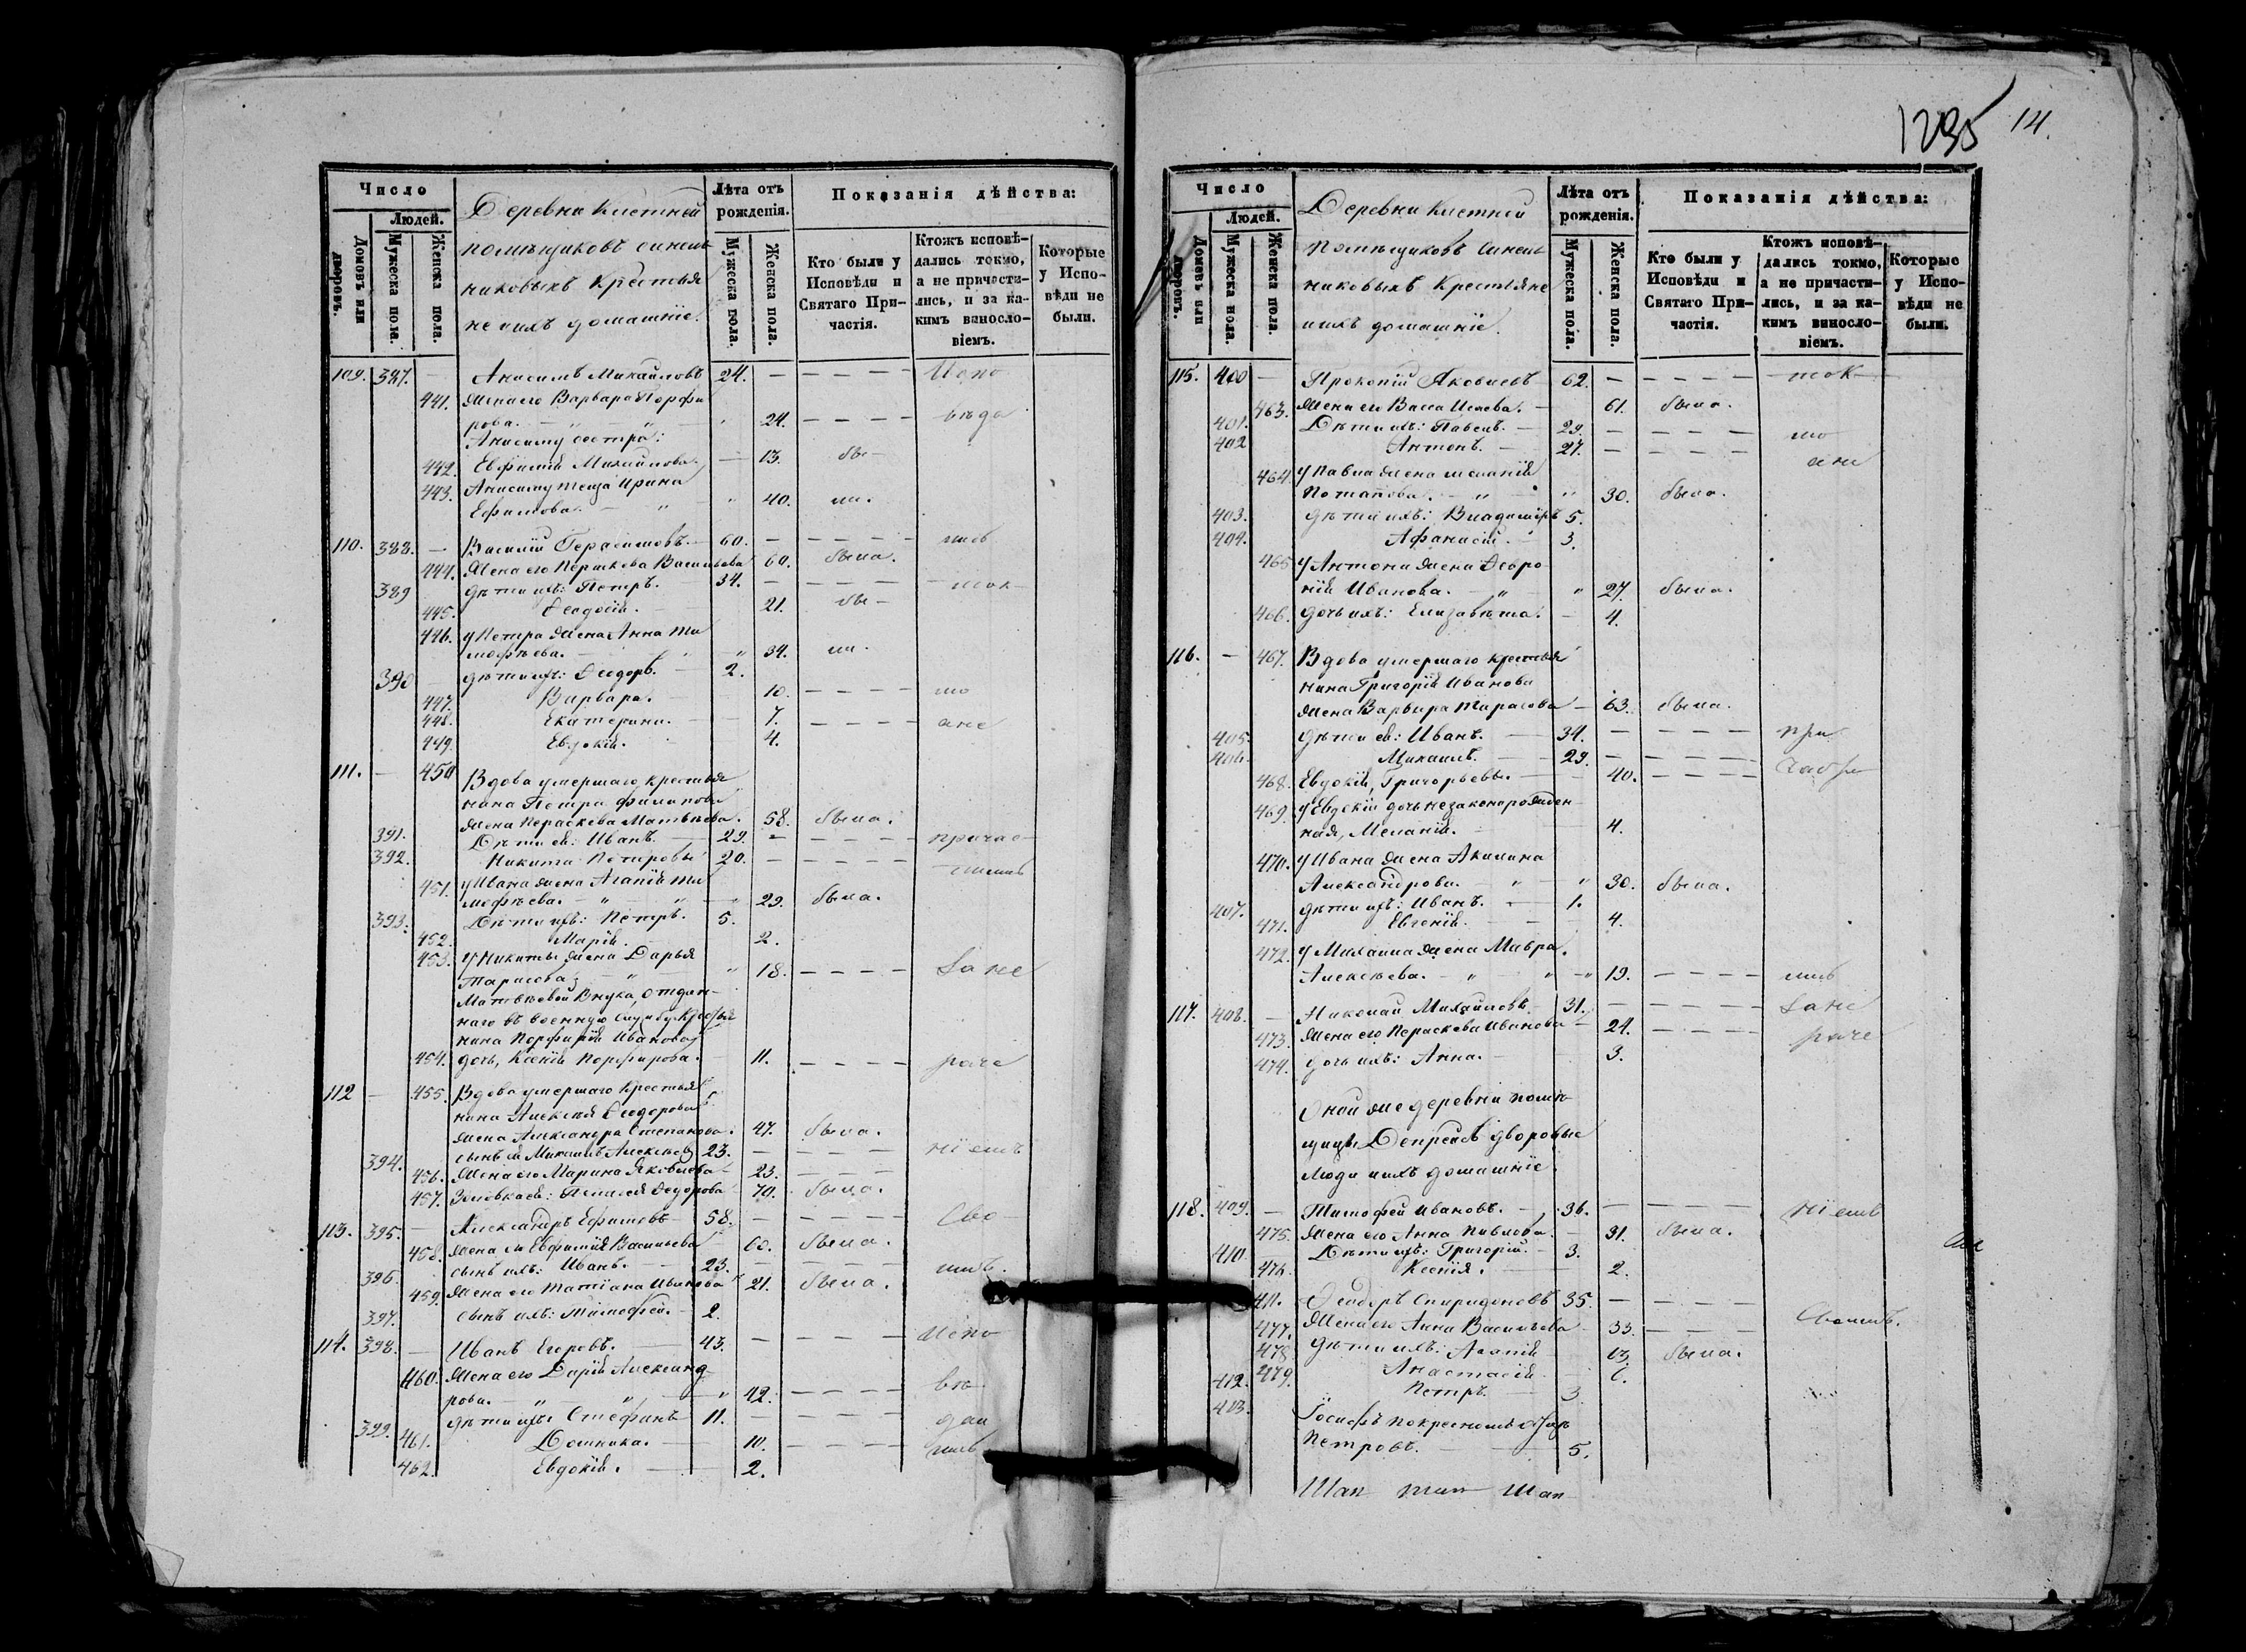 1295 14.
Число
Людей.
Домовъ или дворовъ.
Мужеска пола.
Женска пола.
Деревни Клетней
помѣщиковъ Синель
никовыхъ Крестья
не и ихъ домашніе.
Лѣта отъ рожденія.
Мужеска пола.
Женска пола.
Показанія дѣйства:
Кто были у Исповѣди и Святаго При-частія.
Ктожъ исповѣ-дались токмо, а не причасти-лись, и за ка-кимъ винослo-віемъ.
Которые у Испо-вѣди не были.
109. 387. — Анисимъ Михайловъ 24. — — — — Испо
441. Жена его Варвара Порфи
рова. — " — " 24. — — — — вѣда
Анисиму сестра:
442. Евфимія Михайлова. — 13. бы —
443. Анисиму теща Ирина
Ефимова. — " — " 40. ла.
110. 388. — Василій Герасимовъ. — 60. — — — — лись
444. Жена его Параскева Васильева 60. была.
389 Дѣти ихъ: Петръ. 34. — — — — ток
445. Ѳеодосія. — 21. бы —
446. у Петра жена Анна Ти
мофѣева. — " 34. ла.
390 — дѣти ихъ: Ѳеодоръ. — 2.
447. Варвара. 10. — — — — мо
448. Екатерина. — 7. — — — — ане
449. Евдокія. 4.
111. — 450 Вдова умершаго крестья
нина Петра Филипова
жена Параскева Матвѣева. 58. была.
391. Дѣти ея: Иванъ. — 29. — — — — причас
392. Никита Петровы 20. — — — — тились
451. у Ивана жена Агапія Ти
мофѣева. — " " — " 29. была.
393. Дѣти ихъ: Петръ. 5.
452. Марія. 2.
453. у Никиты жена Дарья
Тарасова; — " — " 18. — — — — за не
Матвѣевой внука, отдан-
наго въ военную службу крестья
нина Порфирія Иванова
454. дочь, Ксенія Порфирова. — 11. — — — — раче
112 — 455. Вдова умершаго крестья
нина Алексѣя Ѳеодорова
жена Александра Степанова. 47. была.
394. сынъ ея Михаилъ Алексѣевъ 23. — — — — ніемъ
456. Жена его Марина Яковлева 23. — — —
457. Золовка ея: Пелагея Ѳедорова 70. была.
113. 395. — Александръ Ефимовъ 58. — — — — Сво
458. Жена его Евфимія Васильева 60. была.
396. сынъ ихъ: Иванъ. — 23. — — — — имъ.
459. Жена его Татіана Иванова 21. была.
397. сынъ ихъ: Тимофей. — 2.
114. 398. — Иванъ Егоровъ. — 43. — — — — Испо
460. Жена его Дарія Александ
рова. — " — " 42. — — — — вѣ
399. дѣти ихъ: Стефанъ 11. — — — — дали
461. Домника. — 10. — — — — лись
462. Евдокія. — 2.
Число
Людей.
Домовъ или дворовъ.
Мужеска пола.
Женска пола.
Деревни Клетней
помѣщиковъ Синель
никовыхъ Крестьяне
и ихъ домашніе.
Лѣта отъ рожденія.
Мужеска пола.
Женска пола.
Показанія дѣйства:
Кто были у Исповѣди и Святаго При-частія.
Ктожъ исповѣ-дались токмо, а не причасти-лись, и за ка-кимъ винослo-віемъ.
Которые у Испо-вѣди не были.
115. 400 — Прокопій Яковлевъ 62. — — — — ток
463. Жена его Васса Исаева. — 61. была.
401. Дѣти ихъ: Павелъ. — 29. — — — — мо
402 Антонъ. — 27. — — — — ане
464. у Павла жена Меланія
Потапова. — " " 30. была.
403. дѣти ихъ: Владиміръ 5.
404. Афанасій. 3.
465 у Антона жена Февро
нія Иванова. — " " 27. была.
466. дочь ихъ: Елизавета. — 4.
116. — 467. Вдова умершаго крестья
нина Григорія Иванова
жена Варвара Тарасова — 63. была.
405. дѣти ея: Иванъ. — 34. — — — — при
406. Михаилъ. — 29. — — — —
468. Евдокія, Григорьевы. — 40. — — — —
469. у Евдокіи дочь незаконорожден
ная, Меланія. — 4.
470. у Ивана жена Акилина
Александрова. — " — " 30. была.
407. дѣти ихъ: Иванъ. — 1.
471. Евгенія. — 4.
472. у Михаила жена Мавра
Алексѣева. — " " — " 19. — — — — лись
117. 408. — Николай Михайловъ 31. — — — — за не
473. Жена его Параскева Иванова — 24. — — — — раче
474. дочь ихъ: Анна. — 3.
Оной же деревни помѣ
щицы дворовые
люди и ихъ домашніе.
118. 409. — Тимофей Ивановъ. — 36. — — — — ніемъ
475. Жена его Анна Павлова. — 31. была.
410. Дѣти ихъ: Григорій. — 3.
476. Ксенія. — 2.
411. Ѳеодоръ Спиридоновъ 35. — — — —
477. Жена его Анна Васильева 33. — — — Своимъ.
478. дѣти ихъ: Агапія 13. была.
479. Анастасія 6.
412. Петръ. — 3
413. Іосифъ по крестномъ отцѣ
Петровъ. — 5.